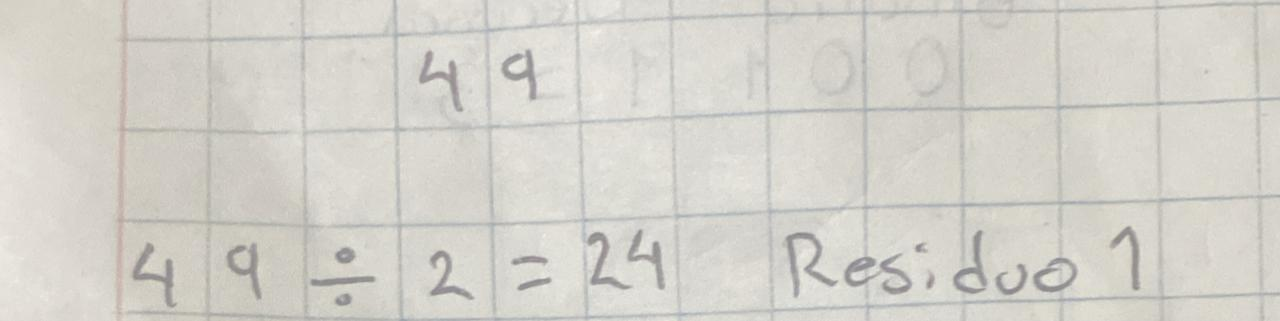 49
49 ÷ 2 = 24 Residuo 1